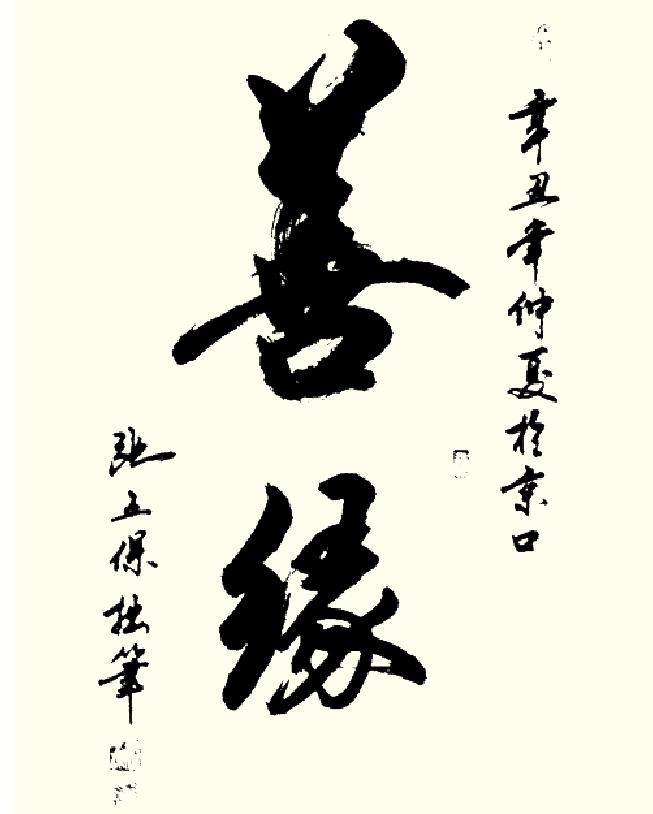 善缘
辛丑年仲夏於京口
张玉保拙筆